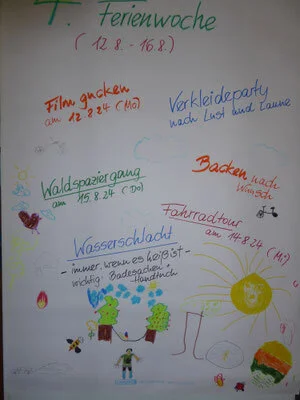 4. Ferienwoche
(12.8. - 16.8.)
Film gucken
am 12.8.24 (Mo)
Verkleideparty
nach Lust und Laune
Backen nach
Wunsch
Waldspaziergang
am 15.8.24 (Do)
Fahrradtour
am 14.8.24 (Mi)
Wasserschlacht
- immer, wenn es heiß ist -
wichtig: Badesachen +
Handtuch